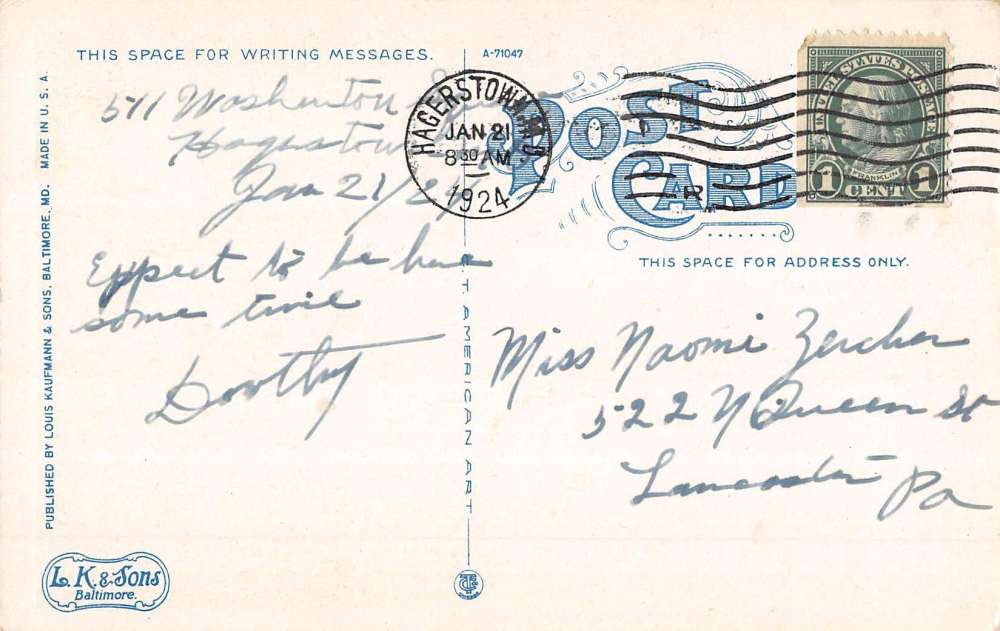 THIS SPACE FOR WRITING MESSAGES.
A-71047
511 Washenton
Hagerstown
Jan 21/24
Expect to be here
some time
Dorothy
HAGERSTOWN, MD.
JAN 21
8 30 AM
1924
POST CARD
UNITED STATES POSTAGE
FRANKLIN
1 CENT 1
THIS SPACE FOR ADDRESS ONLY.
Miss Naomi Zercher
522 N Queen St
Lancaster Pa
PUBLISHED BY LOUIS KAUFMANN & SONS, BALTIMORE, MD. MADE IN U. S. A.
AMERICAN ART
L. K. & Sons
Baltimore.